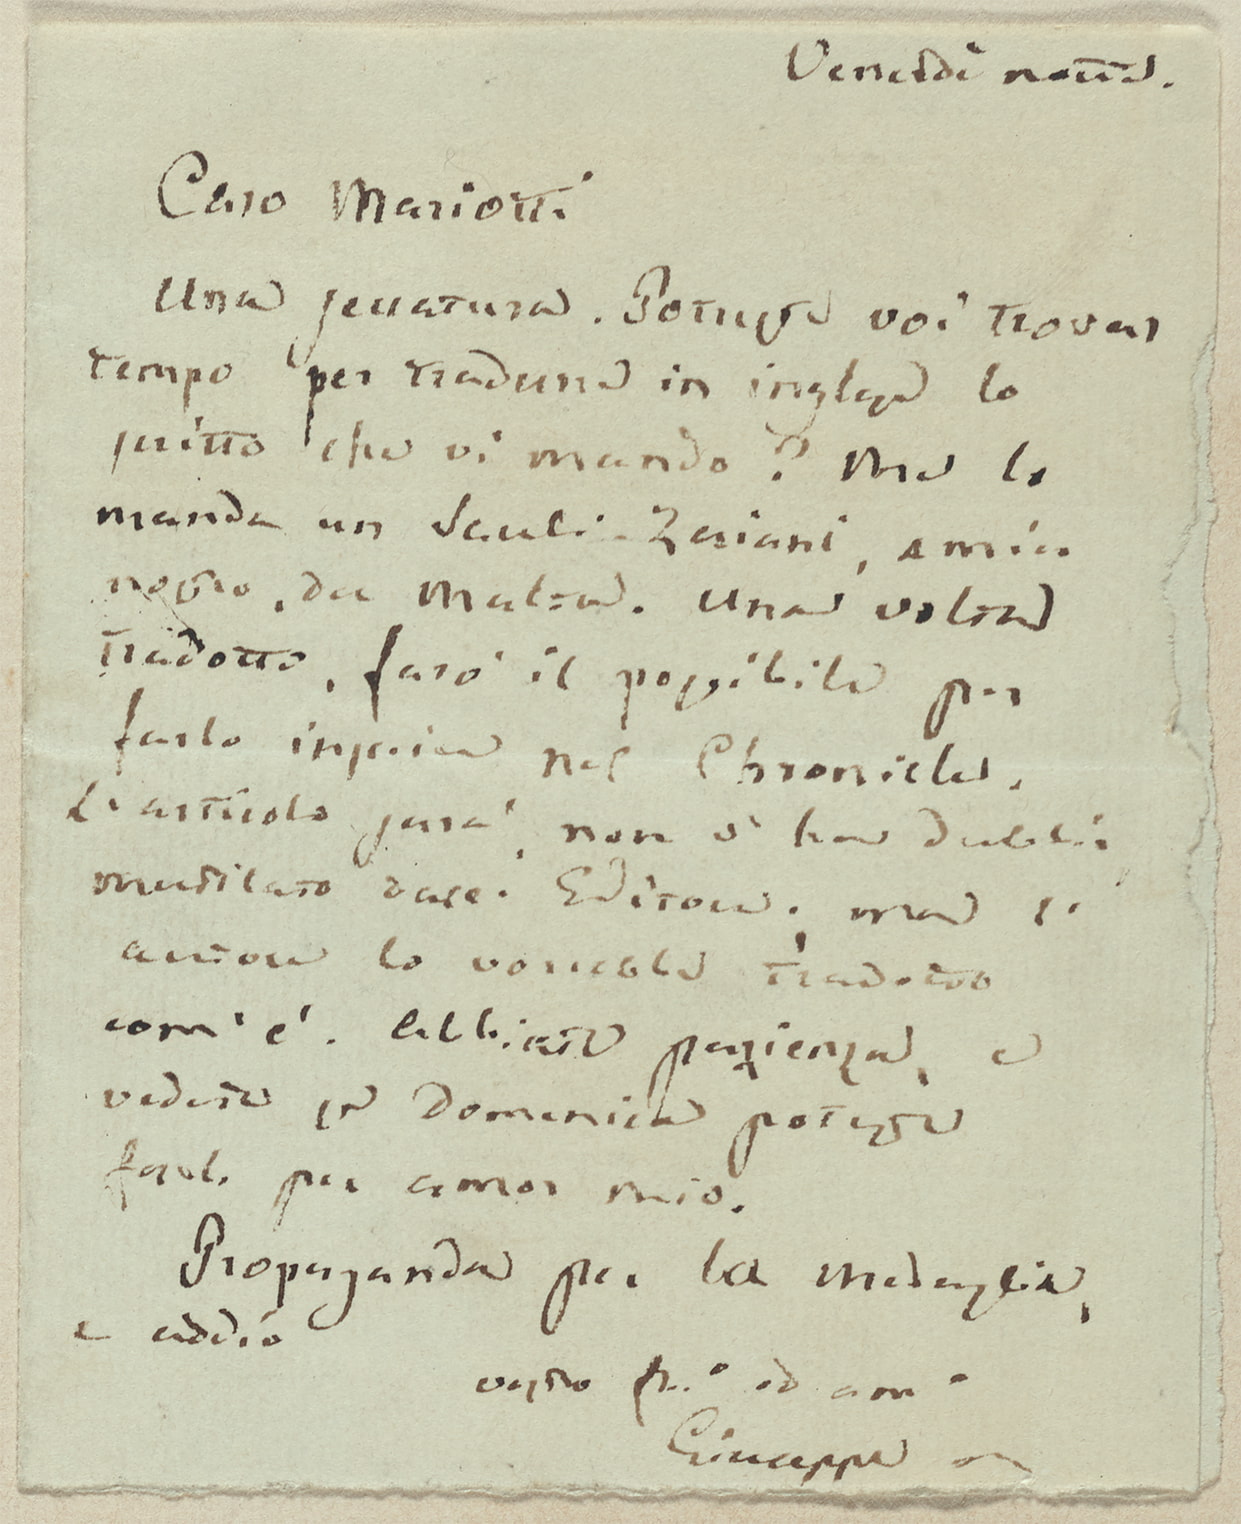 Venerdì notte.
Caro Mariotti
Una seccatura. Potreste voi trovar
tempo per tradurre in inglese lo
scritto che vi mando? Me lo
manda un Sauli Zeriani, amico
nostro, da Malta. Una volta
tradotto, farò il possibile per
farlo inserire nel Chronicle.
L'articolo sarà, non v'ha dubbio
mutilato dagli Editori; ma l'
autore lo vorrebbe tradotto
com'è. Abbiate pazienza, e
vedete se Domenica poteste
farlo per amor mio.
Propaganda per la medaglia,
e addio
vostro fr.º ed am º
Giuseppe